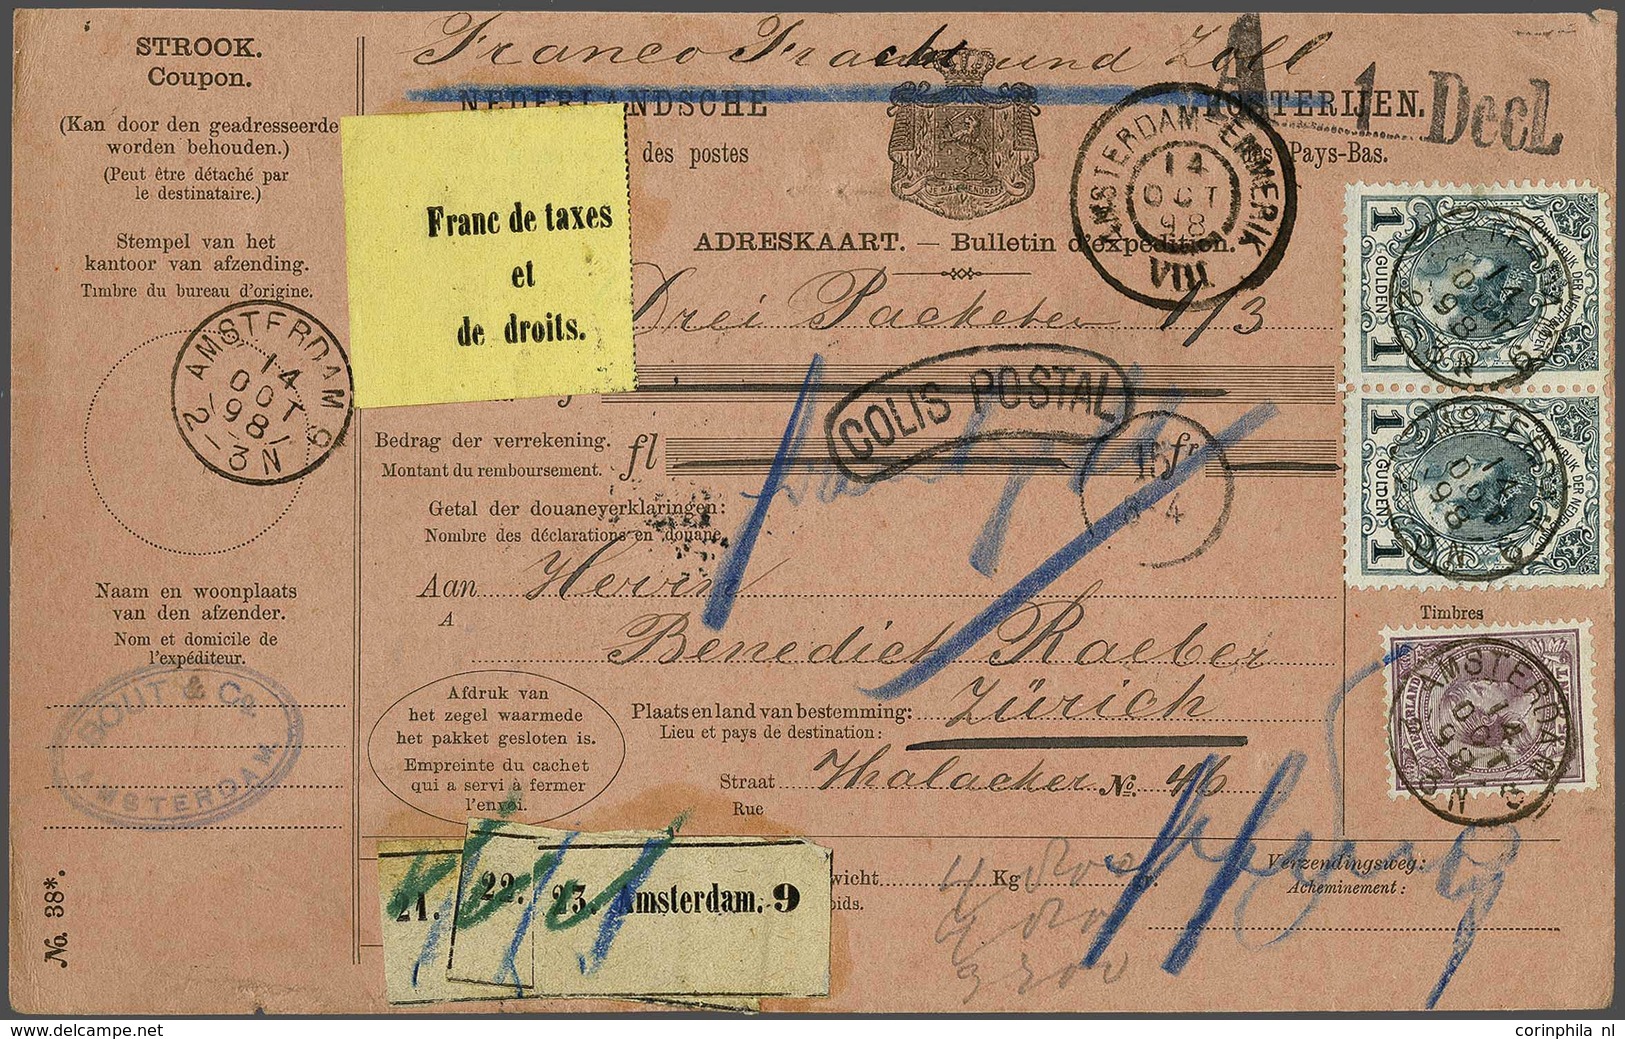 STROOK.
Coupon.
(Kan door den geadresseerde
worden behouden.)
(Peut être détaché par
le destinataire.)
Stempel van het
kantoor van afzending.
Timbre du bureau d'origine.
AMSTERDAM 9
14
OCT
98
2-3N
Naam en woonplaats
van den afzender.
Nom et domicile de
l'expéditeur.
BOUT & Co.
AMSTERDAM.
No. 38*.
Franco Fracht und Zoll
NEDERLANDSCHE POSTERIJEN.
des postes des Pays-Bas.
A 1 Decl.
JE MAINTIENDRAI
Franc de taxes
et
de droits.
AMSTERDAM-EMMERIK
14
OCT
98
VIII
ADRESKAART. — Bulletin d'expédition.
Drei Packeten 1/3
COLIS POSTAL
Bedrag der verrekening.
Montant du remboursement.
fl fr
Getal der douaneverklaringen:
Nombre des déclarations en douane
Aan Herrn
A
Benedict Raeber
Plaats en land van bestemming: Zürich
Lieu et pays de destination:
Straat Thalacker No. 46
Rue
Afdruk van
het zegel waarmede
het pakket gesloten is.
Empreinte du cachet
qui a servi à fermer
l'envoi.
21. 22. 23. Amsterdam. 9
wicht Kg gr.
oids.
Verzendingsweg:
Acheminement:
KONINKRIJK DER NEDERLANDEN
1 GULDEN 1
AMSTERDAM 9
14
OCT
98
2-3N
KONINKRIJK DER NEDERLANDEN
1 GULDEN 1
AMSTERDAM 9
14
OCT
98
2-3N
Timbres
NEDERLAND
AMSTERDAM 9
14
OCT
98
2-3N
corinphila nl